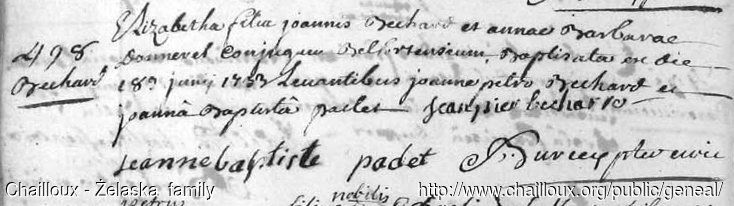 Elizabetha filia joannis Bechard et annae Barbarae
498 donnerel conjugum Belfortensium, Baptisata est die
Bechard 18â junij 1733 Levantibus joanne petro Bechard et
joannâ Baptistâ padet jean pier bechard
jeannebaptiste padet
Chailloux - Żelaska family http://www.chailloux.org/public/geneal/
nobilis